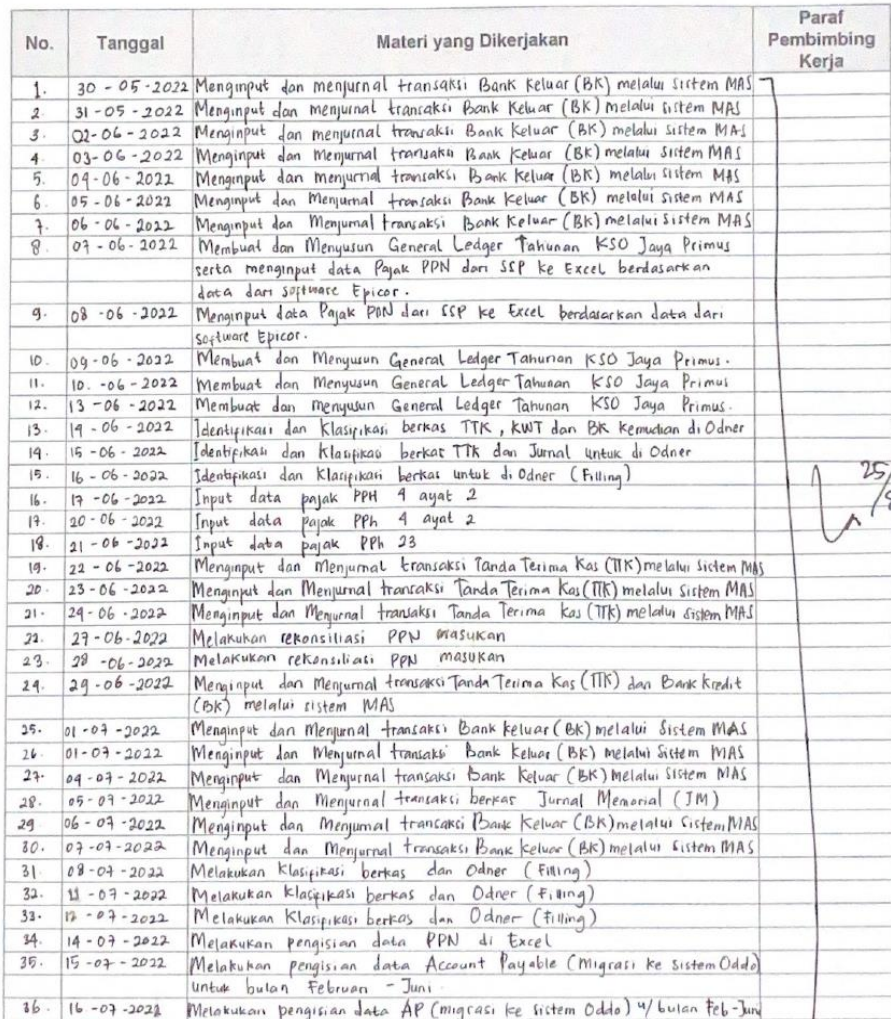 No. Tanggal Materi yang Dikerjakan Paraf Pembimbing Kerja
1. 30 - 05 - 2022 Menginput dan menjurnal transaksi Bank Keluar (BK) melalui sistem MAS
2. 31 - 05 - 2022 Menginput dan menjurnal transaksi Bank Keluar (BK) melalui sistem MAS
3. 02 - 06 - 2022 Menginput dan menjurnal transaksi Bank Keluar (BK) melalui sistem MAS
4. 03 - 06 - 2022 Menginput dan Menjurnal transaksi Bank Keluar (BK) melalui sistem MAS
5. 04 - 06 - 2022 Menginput dan menjurnal transaksi Bank Keluar (BK) melalui sistem MAS
6. 05 - 06 - 2022 Menginput dan Menjurnal transaksi Bank Keluar (BK) melalui sistem MAS
7. 06 - 06 - 2022 Menginput dan Menjurnal transaksi Bank Keluar (BK) melalui Sistem MAS
8. 07 - 06 - 2022 Membuat dan Menyusun General Ledger Tahunan KSO Jaya Primus
serta menginput data Pajak PPN dari SSP ke Excel berdasarkan
data dari software Epicor.
9. 08 - 06 - 2022 Menginput data Pajak PPN dari SSP ke Excel berdasarkan data dari
software Epicor.
10. 09 - 06 - 2022 Membuat dan Menyusun General Ledger Tahunan KSO Jaya Primus.
11. 10. - 06 - 2022 Membuat dan Menyusun General Ledger Tahunan KSO Jaya Primus
12. 13 - 06 - 2022 Membuat dan menyusun General Ledger Tahunan KSO Jaya Primus.
13. 14 - 06 - 2022 Identifikasi dan Klasifikasi berkas TTK, KWT dan BK Kemudian di Odner
14. 15 - 06 - 2022 Identifikasi dan Klasifikasi berkas TTK dan Jurnal untuk di Odner
15. 16 - 06 - 2022 Identifikasi dan Klasifikasi berkas untuk di Odner (Filling)
16. 17 - 06 - 2022 Input data pajak PPH 4 ayat 2
17. 20 - 06 - 2022 Input data pajak PPh 4 ayat 2
18. 21 - 06 - 2022 Input data pajak PPh 23
19. 22 - 06 - 2022 Menginput dan Menjurnal transaksi Tanda Terima Kas (TTK) melalui Sistem MAS
20. 23 - 06 - 2022 Menginput dan Menjurnal transaksi Tanda Terima Kas (TTK) melalui Sistem MAS
21. 24 - 06 - 2022 Menginput dan Menjurnal transaksi Tanda Terima Kas (TTK) melalui Sistem MAS
22. 27 - 06 - 2022 Melakukan rekonsiliasi PPN masukan
23. 28 - 06 - 2022 Melakukan rekonsiliasi PPN masukan
24. 29 - 06 - 2022 Menginput dan Menjurnal transaksi Tanda Terima Kas (TTK) dan Bank Kredit
(BK) melalui sistem MAS
25. 01 - 07 - 2022 Menginput dan Menjurnal transaksi Bank Keluar (BK) melalui Sistem MAS
26. 01 - 07 - 2022 Menginput dan Menjurnal transaksi Bank Keluar (BK) melalui Sistem MAS
27. 04 - 07 - 2022 Menginput dan Menjurnal transaksi Bank Keluar (BK) Melalui Sistem MAS
28. 05 - 07 - 2022 Menginput dan Menjurnal transaksi berkas Jurnal Memorial (JM)
29 06 - 07 - 2022 Menginput dan Menjurnal transaksi Bank Keluar (BK) melalui Sistem MAS
30. 07 - 07 - 2022 Menginput dan Menjurnal transaksi Bank Keluar (BK) melalui Sistem MAS
31. 08 - 07 - 2022 Melakukan Klasifikasi berkas dan Odner (Filling)
32. 11 - 07 - 2022 Melakukan Klasifikasi berkas dan Odner (Filling)
33. - 07 - 2022 Melakukan Klasifikasi berkas dan Odner (filling)
34. 14 - 07 - 2022 Melakukan pengisian data PPN di Excel
35. 15 - 07 - 2022 Melakukan pengisian data Account Payable (Migrasi ke sistem Oddo)
untuk bulan Februari - Juni.
36. 16 - 07 - 2022 Melakukan pengisian data AP (migrasi ke sistem Oddo) u/ bulan Feb-Juni
25/